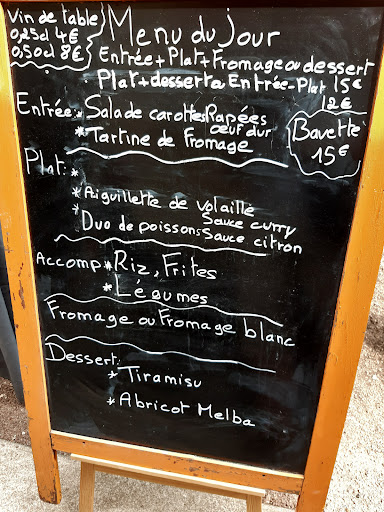 Vin de table
0,25cl 4€
0,50cl 8€
Menu du Jour
Entrée + Plat + Fromage ou dessert
15€
Plat + dessert ou Entrée - Plat
12€
Entrée: * Salade carottes Rapées
oeuf dur
* Tartine de Fromage
Bavette
15€
Plat: *
* Aiguillette de volaille
Sauce curry
* Duo de poissons Sauce citron
Accomp * Riz, Frites
* Légumes
Fromage ou Fromage blanc
Dessert:
* Tiramisu
* Abricot Melba